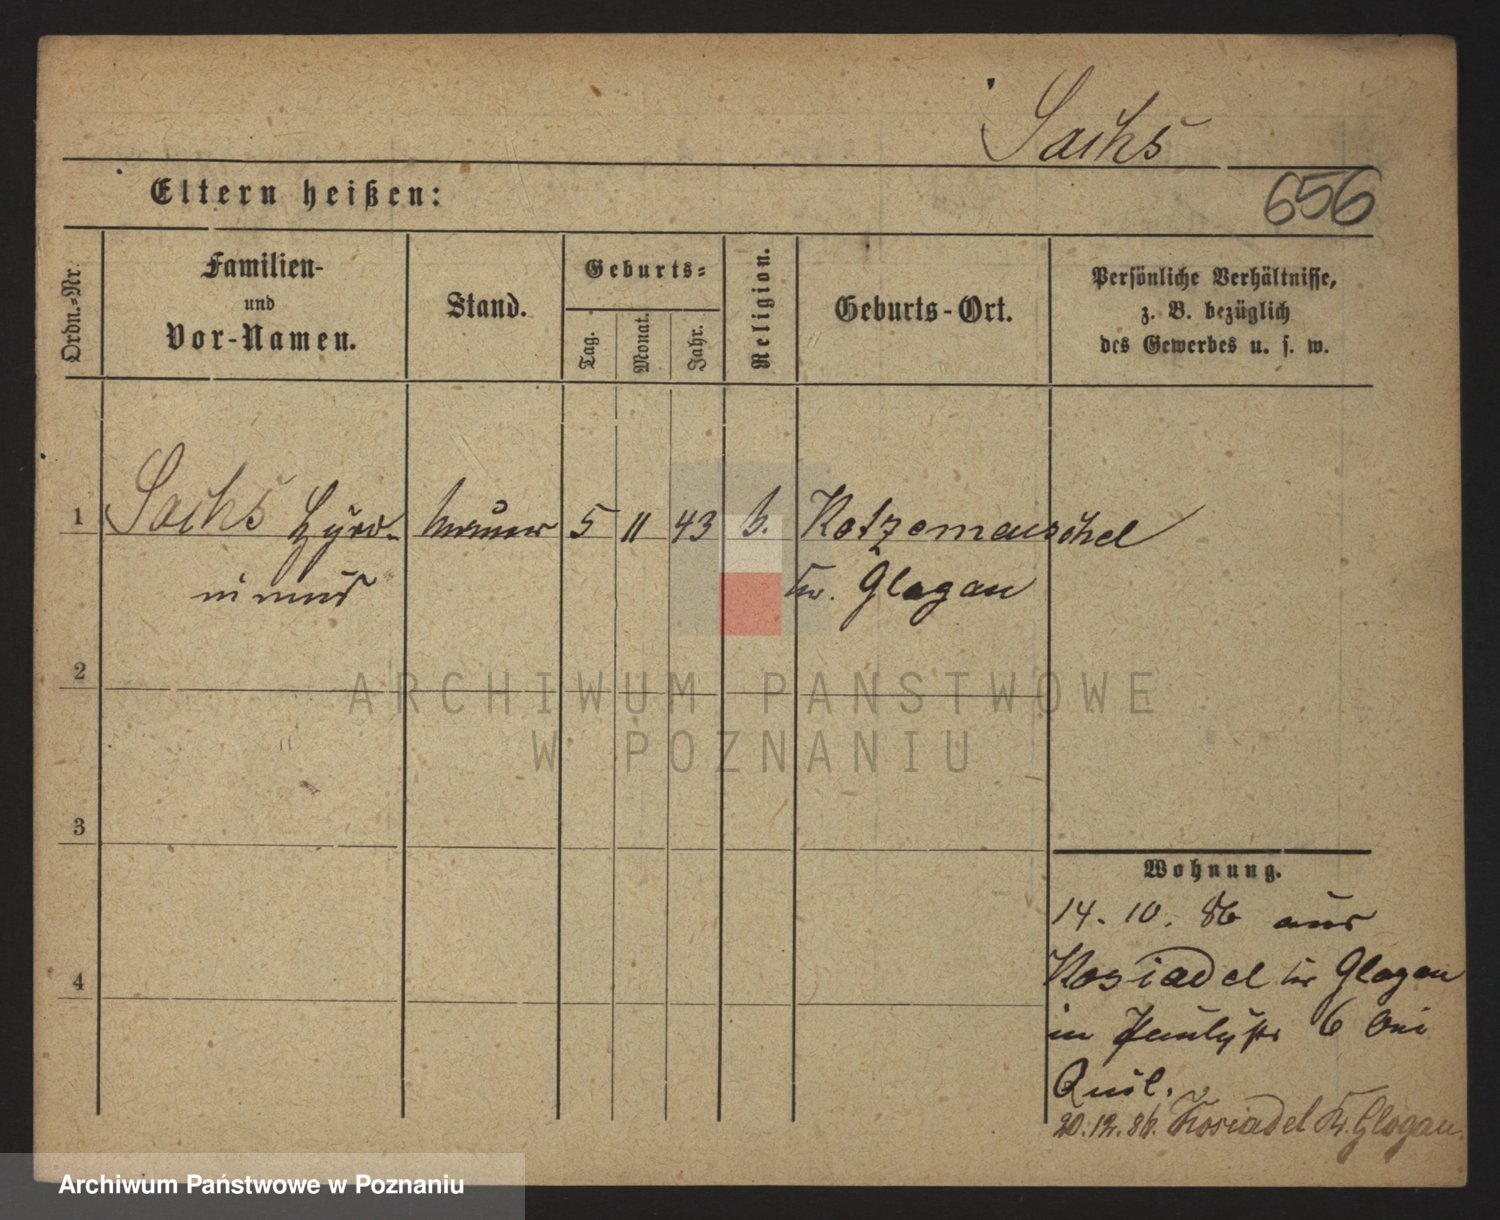 Sachs
Eltern heißen:
656
Ordn.-Nr.
Familien-
und
Vor-Namen.
Stand.
Geburts-
Tag.
Monat.
Jahr.
Religion.
Geburts-Ort.
Persönliche Verhältnisse,
z. B. bezüglich
des Gewerbes u. s. w.
1
Sachs Hyro-
nimus
5
11
43
k.
Kotzemeuschel
Kr. Glogau
2
3
4
ARCHIWUM PAŃSTWOWE
W POZNANIU
Wohnung.
14. 10. 86 aus
Kosiadel Kr Glogau
in Paulystr 6 bei
20.12.86. Kosiadel Kr. Glogau.
Archiwum Państwowe w Poznaniu